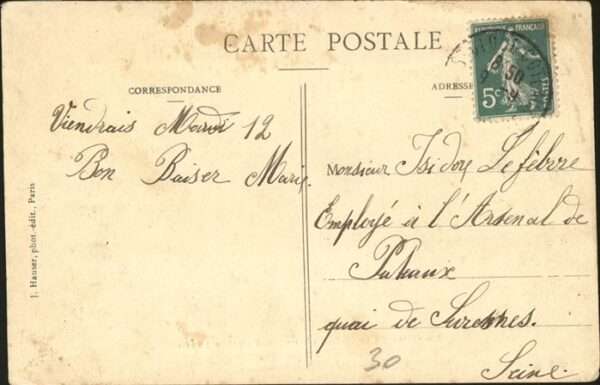 CARTE POSTALE
CORRESPONDANCE
ADRESSE
RÉPUBLIQUE FRANÇAISE
5c
POSTES
8 50
Viendrais Mardi 12
Bon Baiser Marie.
Monsieur Isidore Lefèbvre
Employé à l'Arsenal de
Puteaux
quai de Suresnes.
Seine.
30
J. Hauser, phot.-édit., Paris